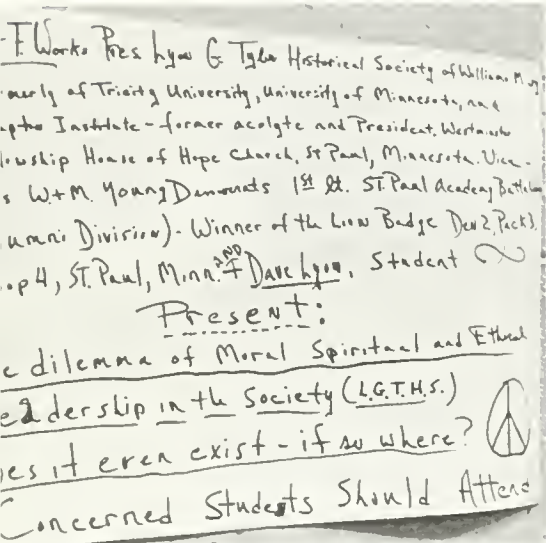 -T. Works Pres Lyon G Tyler Historical Society of William M
merly of Trinity University, University of Minnesota, and
Institute - former acolyte and President, Westminster
lowship House of Hope Church, St Paul, Minnesota. Vice-
s W+M. Young Democrats 1st Lt. ST. Paul Academy Battalion
umni Division) - Winner of the Lion Badge Den 2, Pack 3,
oop 4, ST. Paul, Minn. AND Dave Lyon, Student
Present:
e dilemma of Moral Spiritual and Ethical
eadership in the Society (L.G.T.H.S.)
es it even exist - if so where?
Concerned Students Should Attend